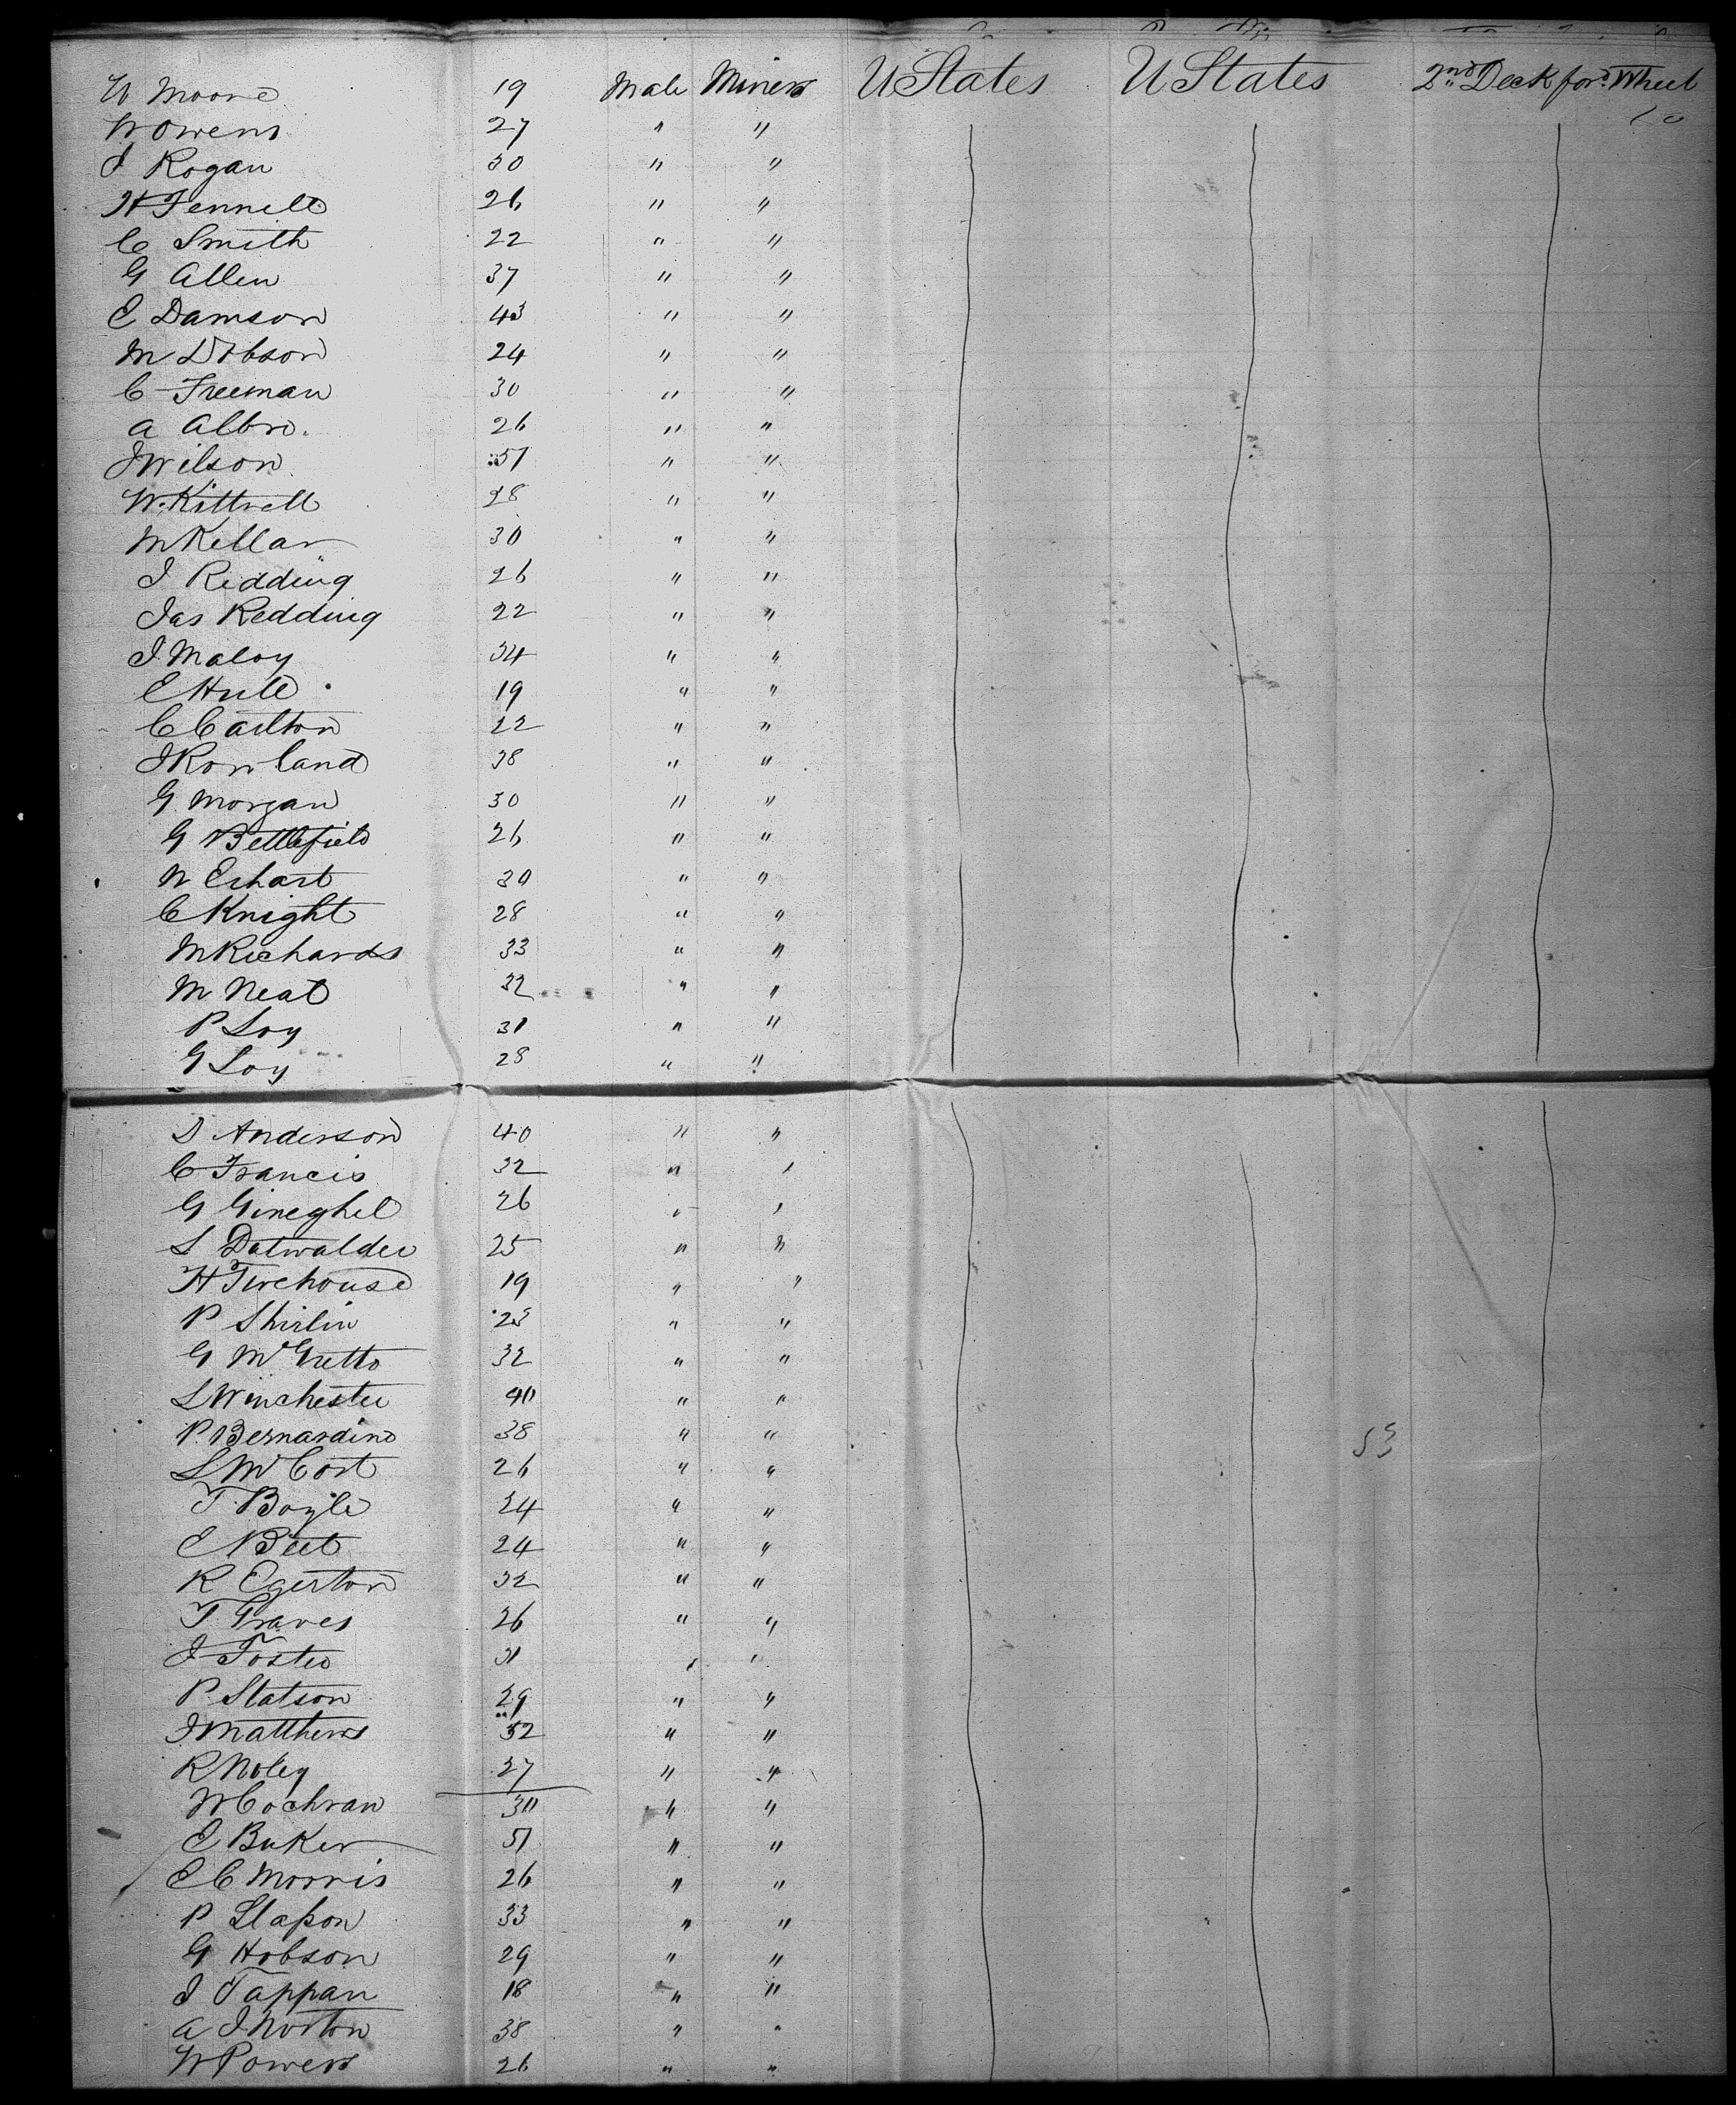 W Moore 19 Male Miners U States U States 2nd Deck ford. Wheel
W Owens 27 " "
J Rogan 30 " "
H Fennell 26 " "
C Smith 22 " "
G Allen 37 " "
E Damson 43 " "
M Dobson 24 " "
C Freeman 30 " "
A Albro. 26 " "
J Wilson 51 " "
W. Kittrell 28 " "
M Kellar 30 " "
J Redding 26 " "
Jas Redding 22 " "
J Maloy 34 " "
E Hull 19 " "
C Carlton 22 " "
J Rowland 38 " "
G Morgan 30 " "
G Bettlefield 26 " "
W Erhart 30 " "
C Knight 28 " "
M Richards 33 " "
M Neal 32 " "
P Loy 31 " "
G Loy 28 " "
D Anderson 40 " "
C Francis 32 " "
G Gineghel 26 " "
L Datwalder 25 " "
H Firehouse 19 " "
P Shirlin 23 " "
G McGretto 32 " "
L Winchester 40 " "
P. Bernardino 38 " " 53
L McCort 26 " "
T. Boyle 24 " "
E Beet 24 " "
R Egerton 32 " "
T. Graves 26 " "
J Foster 31 " "
P. Slatson 29 " "
J Matthews 52 " "
R Noley 27 " "
W Cochran 30 " "
E Baker 51 " "
E C Morris 26 " "
P Slapon 33 " "
G Hobson 29 " "
J Tappan 18 " "
A J Norton 38 " "
W Powers 26 " "